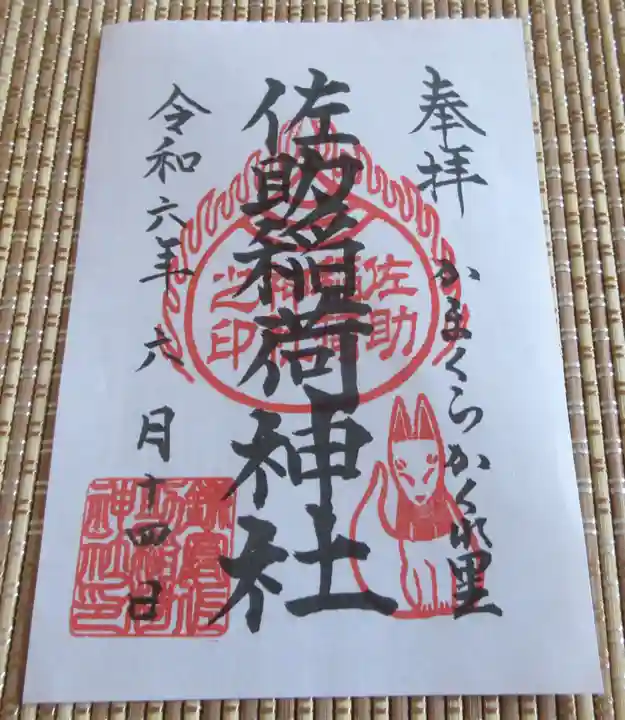 奉拝
かまくらかくれ里
佐助稲荷神社
佐助稲荷神社之印
令和六年六月十四日